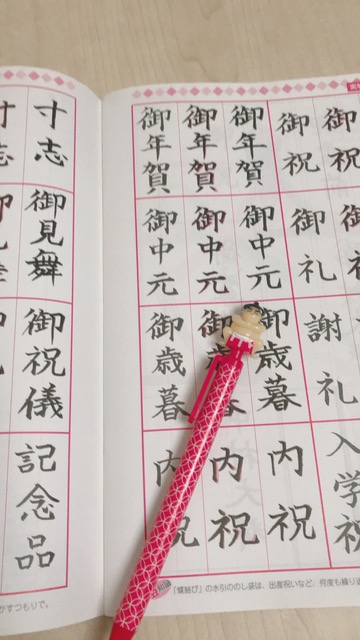 御祝
御祝
御年賀
御年賀
御年賀
御礼
御中元
御中元
御中元
謝礼
御歳暮
御歳暮
御歳暮
入学祝
内祝
内祝
内祝
「蝶結び」の水引ののし袋は、出産祝いなど、何度も繰り
寸志
御見舞
御祝儀
記念品
かすつもりで。